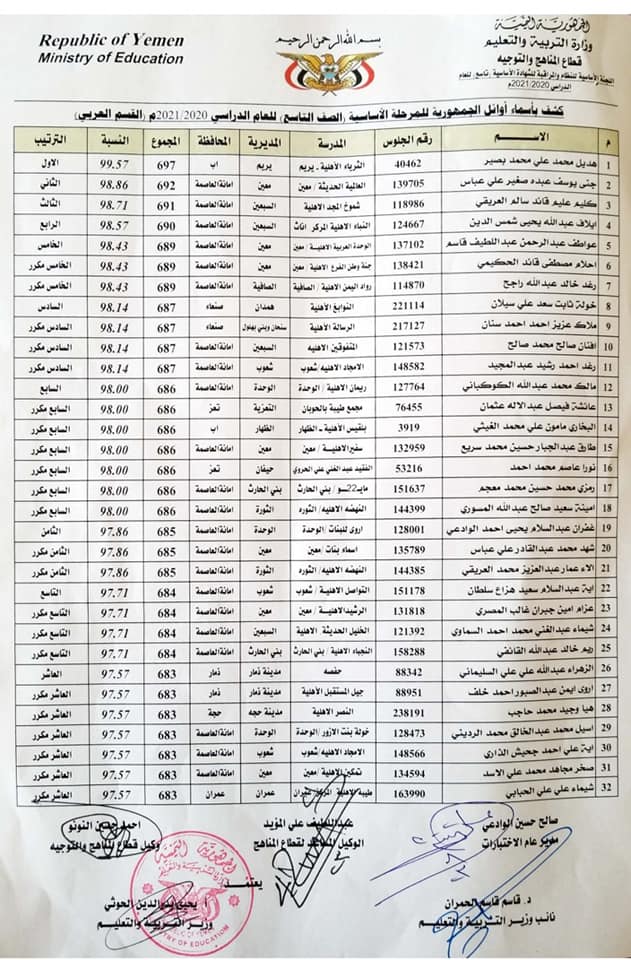 Republic of Yemen
Ministry of Education
بسم الله الرحمن الرحيم
الجمهورية اليمنية
وزارة التربية والتعليم
قطاع المناهج والتوجيه
اللجنة الأساسية للنظام والمراقبة للشهادة الأساسية (تاسع) للعام
الدراسي 2021/2020م
كشف بأسماء أوائل الجمهورية للمرحلة الأساسية (الصف التاسع) للعام الدراسي 2021/2020م (القسم العربي)
م الاســـم رقم الجلوس المدرسة المديرية المحافظة المجموع النسبة الترتيب
1 هديل محمد علي محمد بصير 40462 الثرياء الأهلية - يريم يريم اب 697 99.57 الاول
2 جنى يوسف عبده صغير علي عباس 139705 العالمية الحديثة / معين معين امانة العاصمة 692 98.86 الثاني
3 كليم عليم قائد سالم العريقي 118986 شموخ المجد الاهلية السبعين امانة العاصمة 691 98.71 الثالث
4 ايلاف عبدالله يحيى شمس الدين 124667 النباء الاهلية المركز اناث السبعين امانة العاصمة 690 98.57 الرابع
5 عواطف عبدالرحمن عبد اللطيف قاسم 137102 الوحدة العربية الاهلية / معين معين امانة العاصمة 689 98.43 الخامس
6 احلام مصطفى قائد الحكيمي 138421 جنة وطن الفرع الاهلية / معين معين امانة العاصمة 689 98.43 الخامس مكرر
7 رغد خالد عبدالله راجح 114870 رواد اليمن الاهلية / الصافية الصافية امانة العاصمة 689 98.43 الخامس مكرر
8 خولة ثابت سعد علي سيلان 221114 النوابغ الأهلية همدان صنعاء 687 98.14 السادس
9 ملاك عزيز احمد احمد سنان 217127 الرسالة الأهلية سنحان وبني بهلول صنعاء 687 98.14 السادس مكرر
10 افنان صالح محمد صالح 121573 المتفوقين الاهليه السبعين امانة العاصمة 687 98.14 السادس مكرر
11 رغد احمد رشيد عبد المجيد 148582 الامجاد الاهليه / شعوب شعوب امانة العاصمة 687 98.14 السادس مكرر
12 مالك محمد عبدالله الكوكباني 127764 ريمان الاهلية / الوحدة الوحدة امانة العاصمة 686 98.00 السابع
13 عائشة فيصل عبد الاله عثمان 76455 مجمع طيبة بالحوبان التعزية تعز 686 98.00 السابع مكرر
14 البخاري مامون علي محمد الغيثي 3919 بلقيس الأهلية - الظهار الظهار اب 686 98.00 السابع مكرر
15 طارق عبدالجبار حسين محمد سريع 132959 سفير الاهليــة / معين معين امانة العاصمة 686 98.00 السابع مكرر
16 نورا عاصم محمد احمد 53216 الفقيد عبد الغني علي الحروي حيفان تعز 686 98.00 السابع مكرر
17 رمزي محمد حسين محمد معجم 151637 22 مايــو / بني الحارث بني الحارث امانة العاصمة 686 98.00 السابع مكرر
18 امينة سعيد صالح عبدالله المسوري 144399 النهضه الاهليه / الثوره الثورة امانة العاصمة 686 98.00 السابع مكرر
19 غفران عبدالسلام يحيى احمد الوادعي 128001 اروى للبنات / الوحدة الوحدة امانة العاصمة 685 97.86 الثامن
20 شهد محمد عبدالقادر علي عباس 135789 اسماء بنات / معين معين امانة العاصمة 685 97.86 الثامن مكرر
21 الاء عمار عبدالعزيز محمد العريقي 144385 النهضه الاهليه / الثوره الثورة امانة العاصمة 685 97.86 الثامن مكرر
22 اية عبدالسلام سعيد هزاع سلطان 151178 التواصل الاهليـة / شعوب شعوب امانة العاصمة 684 97.71 التاسع
23 عزام امين جبران غالب المصري 131818 الرشيد الاهليه / معين معين امانة العاصمة 684 97.71 التاسع مكرر
24 شيماء عبدالغني محمد احمد السماوي 121392 الخليل الحديثة الاهلية السبعين امانة العاصمة 684 97.71 التاسع مكرر
25 ريم خالد عبدالله القانفي 158288 النجباء الاهلية / بني الحارث بني الحارث امانة العاصمة 684 97.71 التاسع مكرر
26 الزهراء عبدالله علي علي السليماني 88342 حفصه مدينة ذمار ذمار 683 97.57 العاشر
27 اروى ايمن عبدالصبور احمد خلف 88951 جيل المستقبل الأهلية مدينة ذمار ذمار 683 97.57 العاشر مكرر
28 هيا وحيد محمد حاجب 238191 النصر الاهلية مدينة حجه حجة 683 97.57 العاشر مكرر
29 اسيل محمد عبدالخالق محمد الرديني 128473 خولة بنت الازور / الوحدة الوحدة امانة العاصمة 683 97.57 العاشر مكرر
30 اية علي احمد جحيش الذاري 148566 الامجاد الاهليه / شعوب شعوب امانة العاصمة 683 97.57 العاشر مكرر
31 صخر مجاهد محمد علي الاسد 134594 تمكين الاهلية / معين معين امانة العاصمة 683 97.57 العاشر مكرر
32 شيماء علي علي الحبابي 163990 طيبة الاهلية المركز عمران عمران عمران 683 97.57 العاشر مكرر
صالح حسين الوادعي عبد اللطيف علي المؤيد احمد حسين النونو
مدير عام الاختبارات الوكيل المساعد لقطاع المناهج وكيل قطاع المناهج والتوجيه
يعتمــد
د. قاسم قاسم الحمران أ/ يحيى بدر الدين الحوثي
نائب وزير التربية والتعليم وزير التربية والتعليم